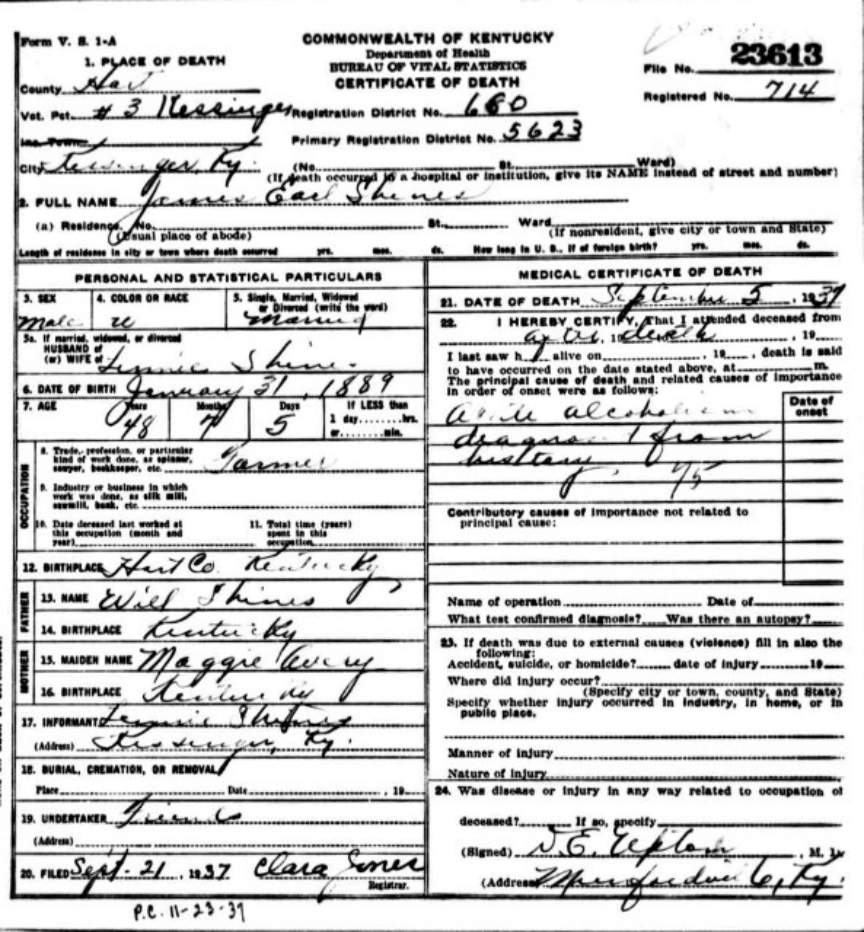 Form V. S. 1-A
COMMONWEALTH OF KENTUCKY
Department of Health
BUREAU OF VITAL STATISTICS
CERTIFICATE OF DEATH
File No. 23613
Registered No. 714
1. PLACE OF DEATH
County Hart
Vot. Pct. #3 Kessinger Registration District No. 680
Inc. Town Primary Registration District No. 5623
City Kessinger, Ky. (No. St. Ward)
(If death occurred in a hospital or institution, give its NAME instead of street and number)
2. FULL NAME James Earl Shines
(a) Residence. No. St. Ward
(Usual place of abode) (If nonresident, give city or town and State)
Length of residence in city or town where death occurred yrs. mos. ds. How long in U. S., if of foreign birth? yrs. mos. ds.
PERSONAL AND STATISTICAL PARTICULARS
3. SEX 4. COLOR OR RACE 5. Single, Married, Widowed
or Divorced (write the word)
Male W Married
5a. If married, widowed, or divorced
HUSBAND of
(or) WIFE of Shines
6. DATE OF BIRTH January 31, 1889
7. AGE Years Months Days If LESS than
1 day, hrs.
48 7 5 or min.
OCCUPATION
8. Trade, profession, or particular
kind of work done, as spinner,
sawyer, bookkeeper, etc. Farmer
9. Industry or business in which
work was done, as silk mill,
sawmill, bank, etc.
10. Date deceased last worked at
this occupation (month and
year)
11. Total time (years)
spent in this
occupation
12. BIRTHPLACE Hart Co. Kentucky
FATHER
13. NAME Will Shines
14. BIRTHPLACE Kentucky
MOTHER
15. MAIDEN NAME Maggie Avery
16. BIRTHPLACE Kentucky
17. INFORMANT Shines
(Address) Kessinger, Ky.
18. BURIAL, CREMATION, OR REMOVAL
Place Date , 19
19. UNDERTAKER Friends
(Address)
20. FILED Sept. 21, 1937 Clara Jones
Registrar.
MEDICAL CERTIFICATE OF DEATH
21. DATE OF DEATH September 5, 1937
22. I HEREBY CERTIFY, That I attended deceased from
after death , 19
I last saw h alive on , 19 , death is said
to have occurred on the date stated above, at m.
The principal cause of death and related causes of importance
in order of onset were as follows:
Date of
onset
Acute alcoholism
diagnosed from
history
75
Contributory causes of importance not related to
principal cause:
Name of operation Date of
What test confirmed diagnosis? Was there an autopsy?
23. If death was due to external causes (violence) fill in also the
following:
Accident, suicide, or homicide? date of injury 19
Where did injury occur?
(Specify city or town, county, and State)
Specify whether injury occurred in industry, in home, or in
public place.
Manner of injury
Nature of injury
24. Was disease or injury in any way related to occupation of
deceased? If so, specify
(Signed) D.E. Upton, M. D.
(Address) Munfordville, Ky.
P.C. 11-23-37